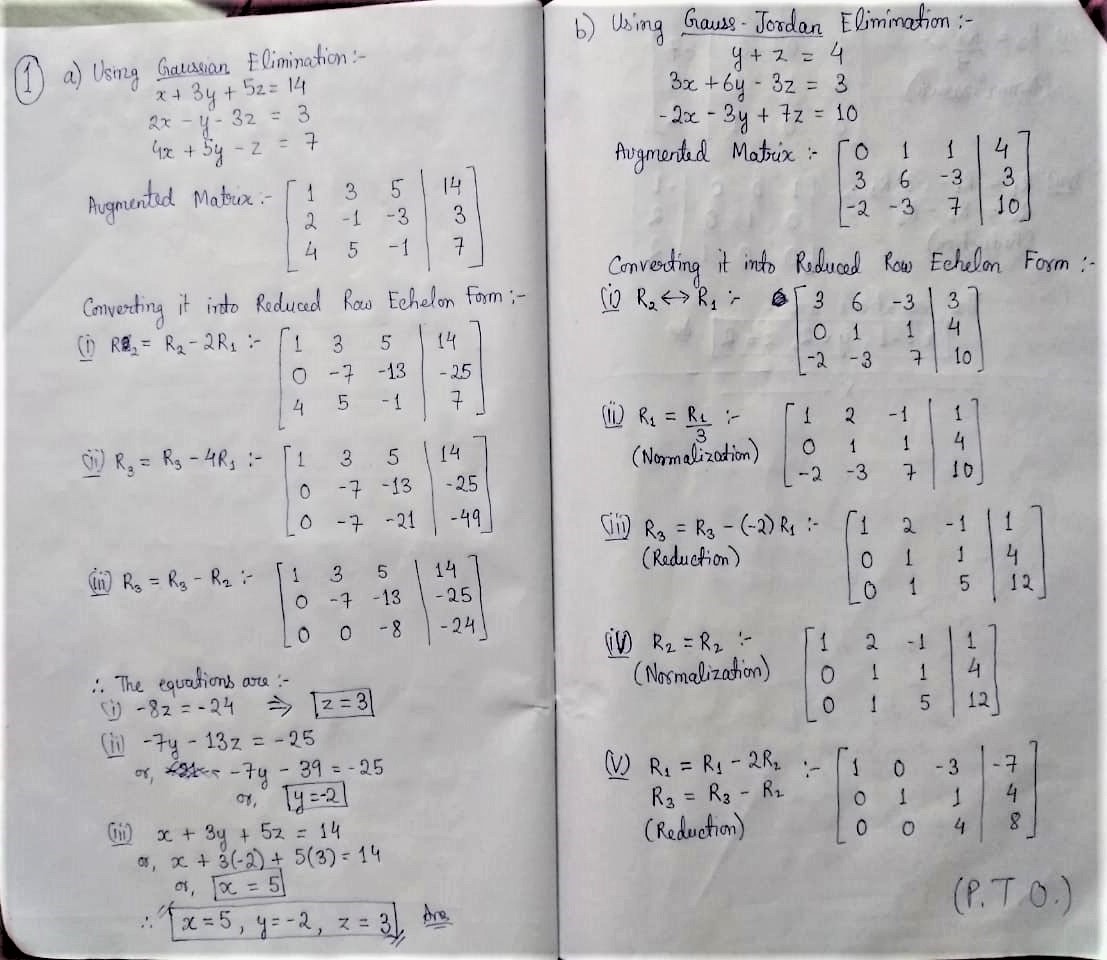 1 a) Using Gaussian Elimination :-
x + 3y + 5z = 14
2x - y - 3z = 3
4x + 5y - z = 7
Augmented Matrix :- [ 1 3 5 | 14 ]
2 -1 -3 | 3
4 5 -1 | 7
Converting it into Reduced Row Echelon Form :-
(i) R2 = R2 - 2R1 :- [ 1 3 5 | 14 ]
0 -7 -13 | -25
4 5 -1 | 7
(ii) R3 = R3 - 4R1 :- [ 1 3 5 | 14 ]
0 -7 -13 | -25
0 -7 -21 | -49
(iii) R3 = R3 - R2 :- [ 1 3 5 | 14 ]
0 -7 -13 | -25
0 0 -8 | -24
∴ The equations are :-
(i) -8z = -24 ⇒ z = 3
(ii) -7y - 13z = -25
or, -7y - 39 = -25
or, y = -2
(iii) x + 3y + 5z = 14
or, x + 3(-2) + 5(3) = 14
or, x = 5
∴ x = 5, y = -2, z = 3 Ans
b) Using Gauss-Jordan Elimination :-
y + z = 4
3x + 6y - 3z = 3
-2x - 3y + 7z = 10
Augmented Matrix :- [ 0 1 1 | 4 ]
3 6 -3 | 3
-2 -3 7 | 10
Converting it into Reduced Row Echelon Form :-
(i) R2 ↔ R1 :- [ 3 6 -3 | 3 ]
0 1 1 | 4
-2 -3 7 | 10
(ii) R1 = R1/3 :- [ 1 2 -1 | 1 ]
(Normalization) 0 1 1 | 4
-2 -3 7 | 10
(iii) R3 = R3 - (-2) R1 :- [ 1 2 -1 | 1 ]
(Reduction) 0 1 1 | 4
0 1 5 | 12
(iv) R2 = R2 :- [ 1 2 -1 | 1 ]
(Normalization) 0 1 1 | 4
0 1 5 | 12
(v) R1 = R1 - 2R2 :- [ 1 0 -3 | -7 ]
R3 = R3 - R2 0 1 1 | 4
(Reduction) 0 0 4 | 8
(P.T.O.)